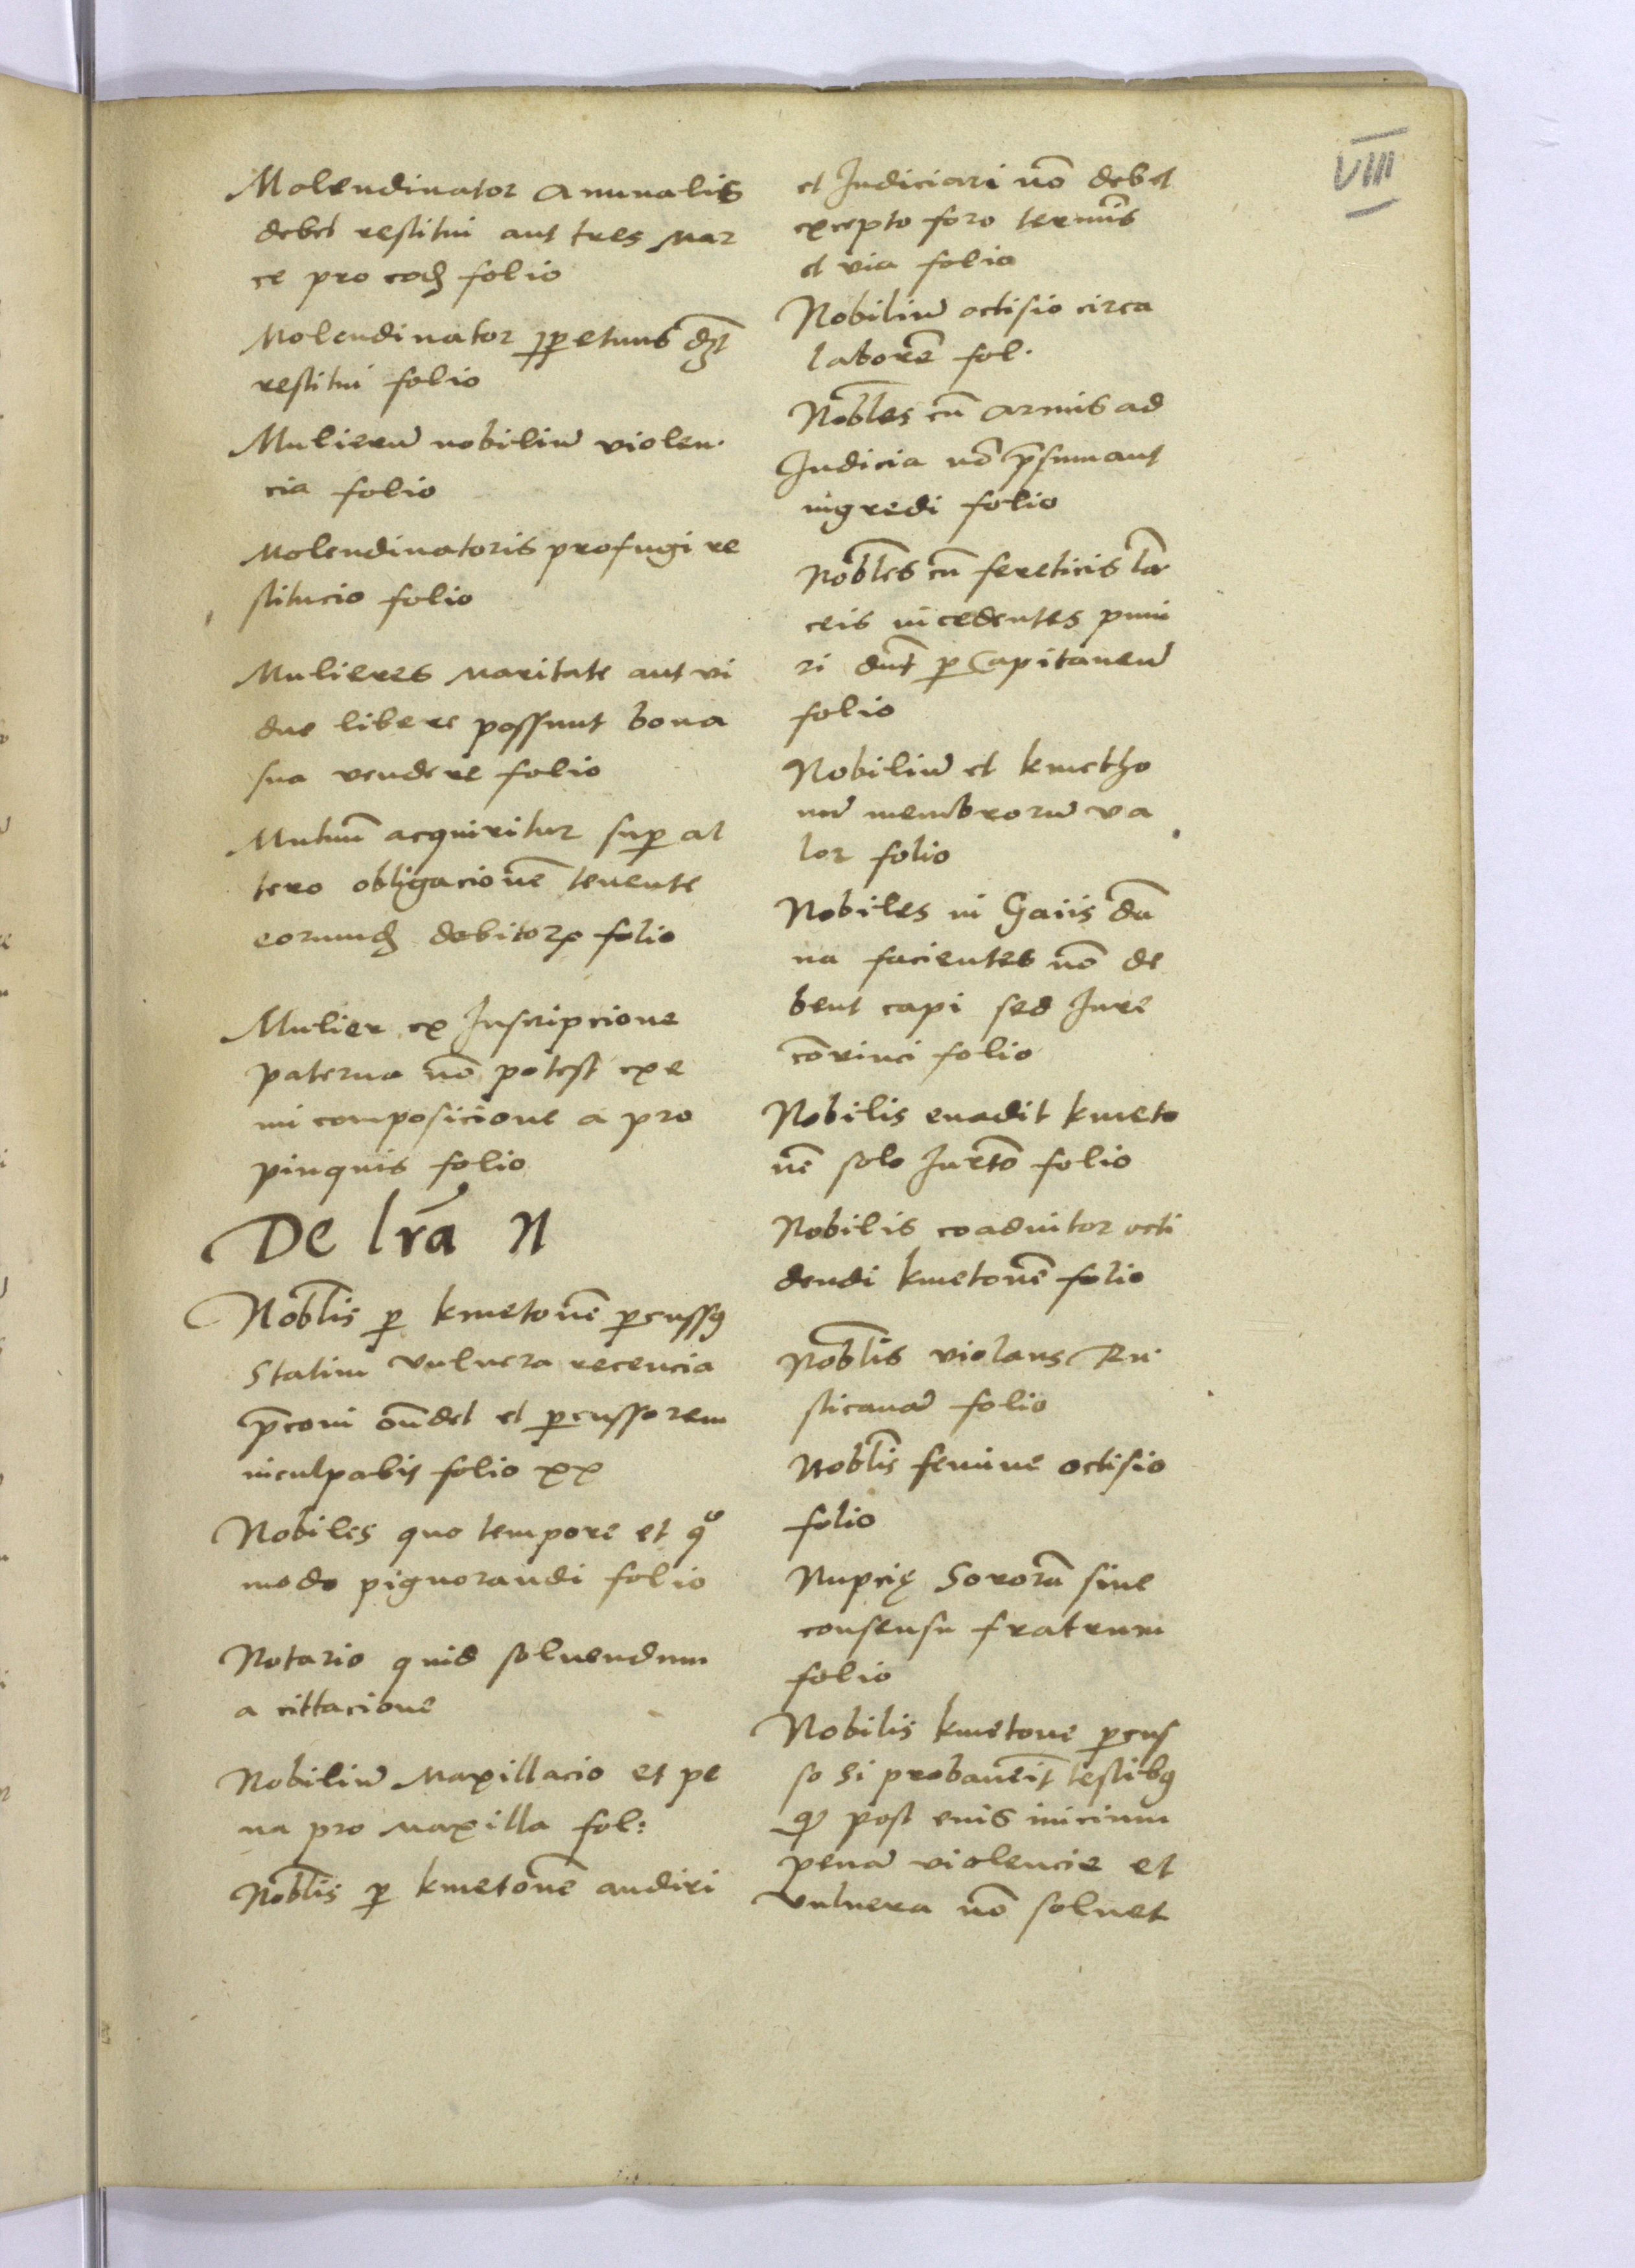 VIII
Molendinator Annualis
debet restitui aut tres mar
ce pro eodꝫ folio
Molendinator ꝑpetuus dꝫt
restitui folio
Mulierū nobiliū violen.
cia folio
Molendinatoris profugi re
stitucio folio
Mulieres maritate aut vi
due libere possunt bona
sua vendere folio
Mutuū acquiritur suꝑ al
tero obligacionē tenente
eorumdꝫ debitoꝝ folio
Mulier ex Inscripcione
paterna nō potest exe
mi composicione a pro
pinquis folio
De lrā N
Nobl̄is ꝑ kmetonē ꝑcussꝯ
Statim vulnera recencia
p̄coni on̄det et ꝑcussorem
inculpabit folio xx
Nobiles quo tempore et qͦ
modo pignorandi folio
Notario quid soluendum
a cittacione
Nobiliū Maxillacio et pe
na pro maxilla fol:
Nobl̄is ꝑ kmetonē audiri
et Iudiciari nō debet
excepto foro termīs
et via folio
Nobiliū octisio circa
laborē fol.
Nobl̄es cū armis ad
Iudicia nō p̄sumant
ingredi folio
Nobl̄es cū fereticis lā
ceis incedentes puni
ri dn̄t ꝑ Capitaneū
folio
Nobiliū et kmetho
nū membrorū va
lor folio
Nobiles in Gaiis dā
na facientes nō de
bent capi sed Iure
cōvinci folio
Nobilis euadit kmeto
nē solo Iurtō folio
Nobilis coadiutor octi
dendi kmetonē folio
Nobl̄is violans Ru.
sticanā folio
Nobl̄is femine octisio
folio
Nupcię Sororū sine
consensu fratrum
folio
Nobilis kmetone ꝑcus
so si probauēit testibꝯ
qꝫ post enis inicium
penā violencie et
vulnera nō soluet